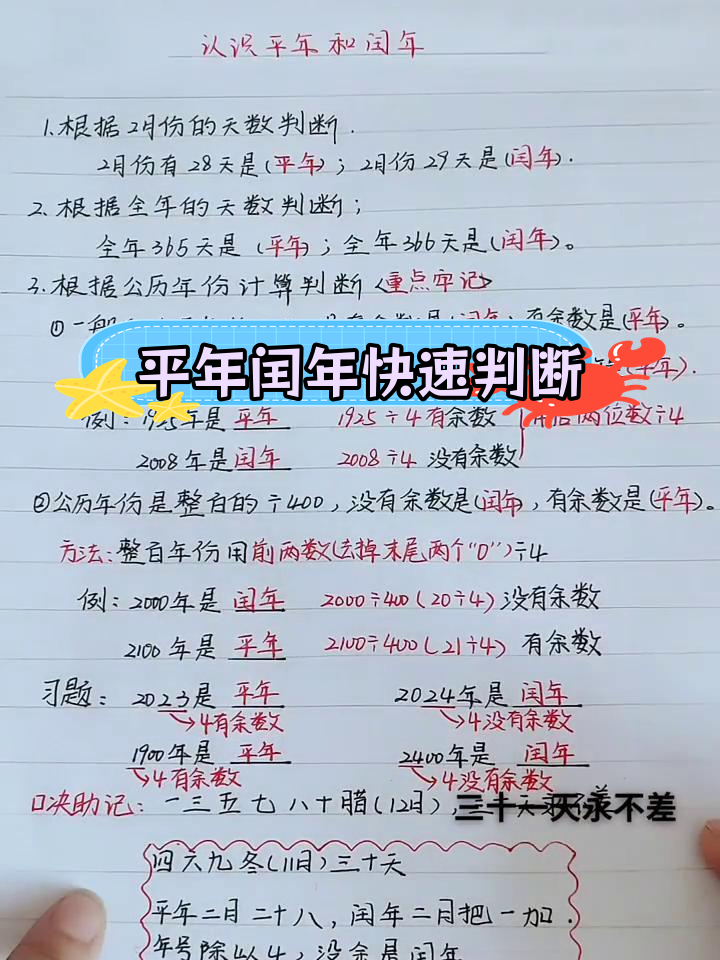 认识平年和闰年
1.根据2月份的天数判断.
2月份有28天是(平年)；2月份29天是(闰年).
2.根据全年的天数判断；
全年365天是(平年)；全年366天是(闰年)。
3.根据公历年份计算判断<重点牢记>
①一般 有余数是(平年)。
平年闰年快速判断
(平年).
例：1925年是平年 1925÷4有余数 后两位数÷4
2008年是闰年 2008÷4 没有余数
②公历年份是整百的÷400，没有余数是(闰年)，有余数是(平年)。
方法：整百年份用前两数(去掉末尾两个"0")÷4
例：2000年是闰年 2000÷400(20÷4)没有余数
2100年是平年 2100÷400(21÷4)有余数
习题：2023是平年 2024年是闰年
→4有余数 →4没有余数
1900年是平年 2400年是闰年
→4有余数 →4没有余数
口决助记：一三五七八十腊(12月)，
三十一天永不差
四六九冬(11月)三十天
平年二月二十八，闰年二月把一加.
年号除以4，没余是闰年